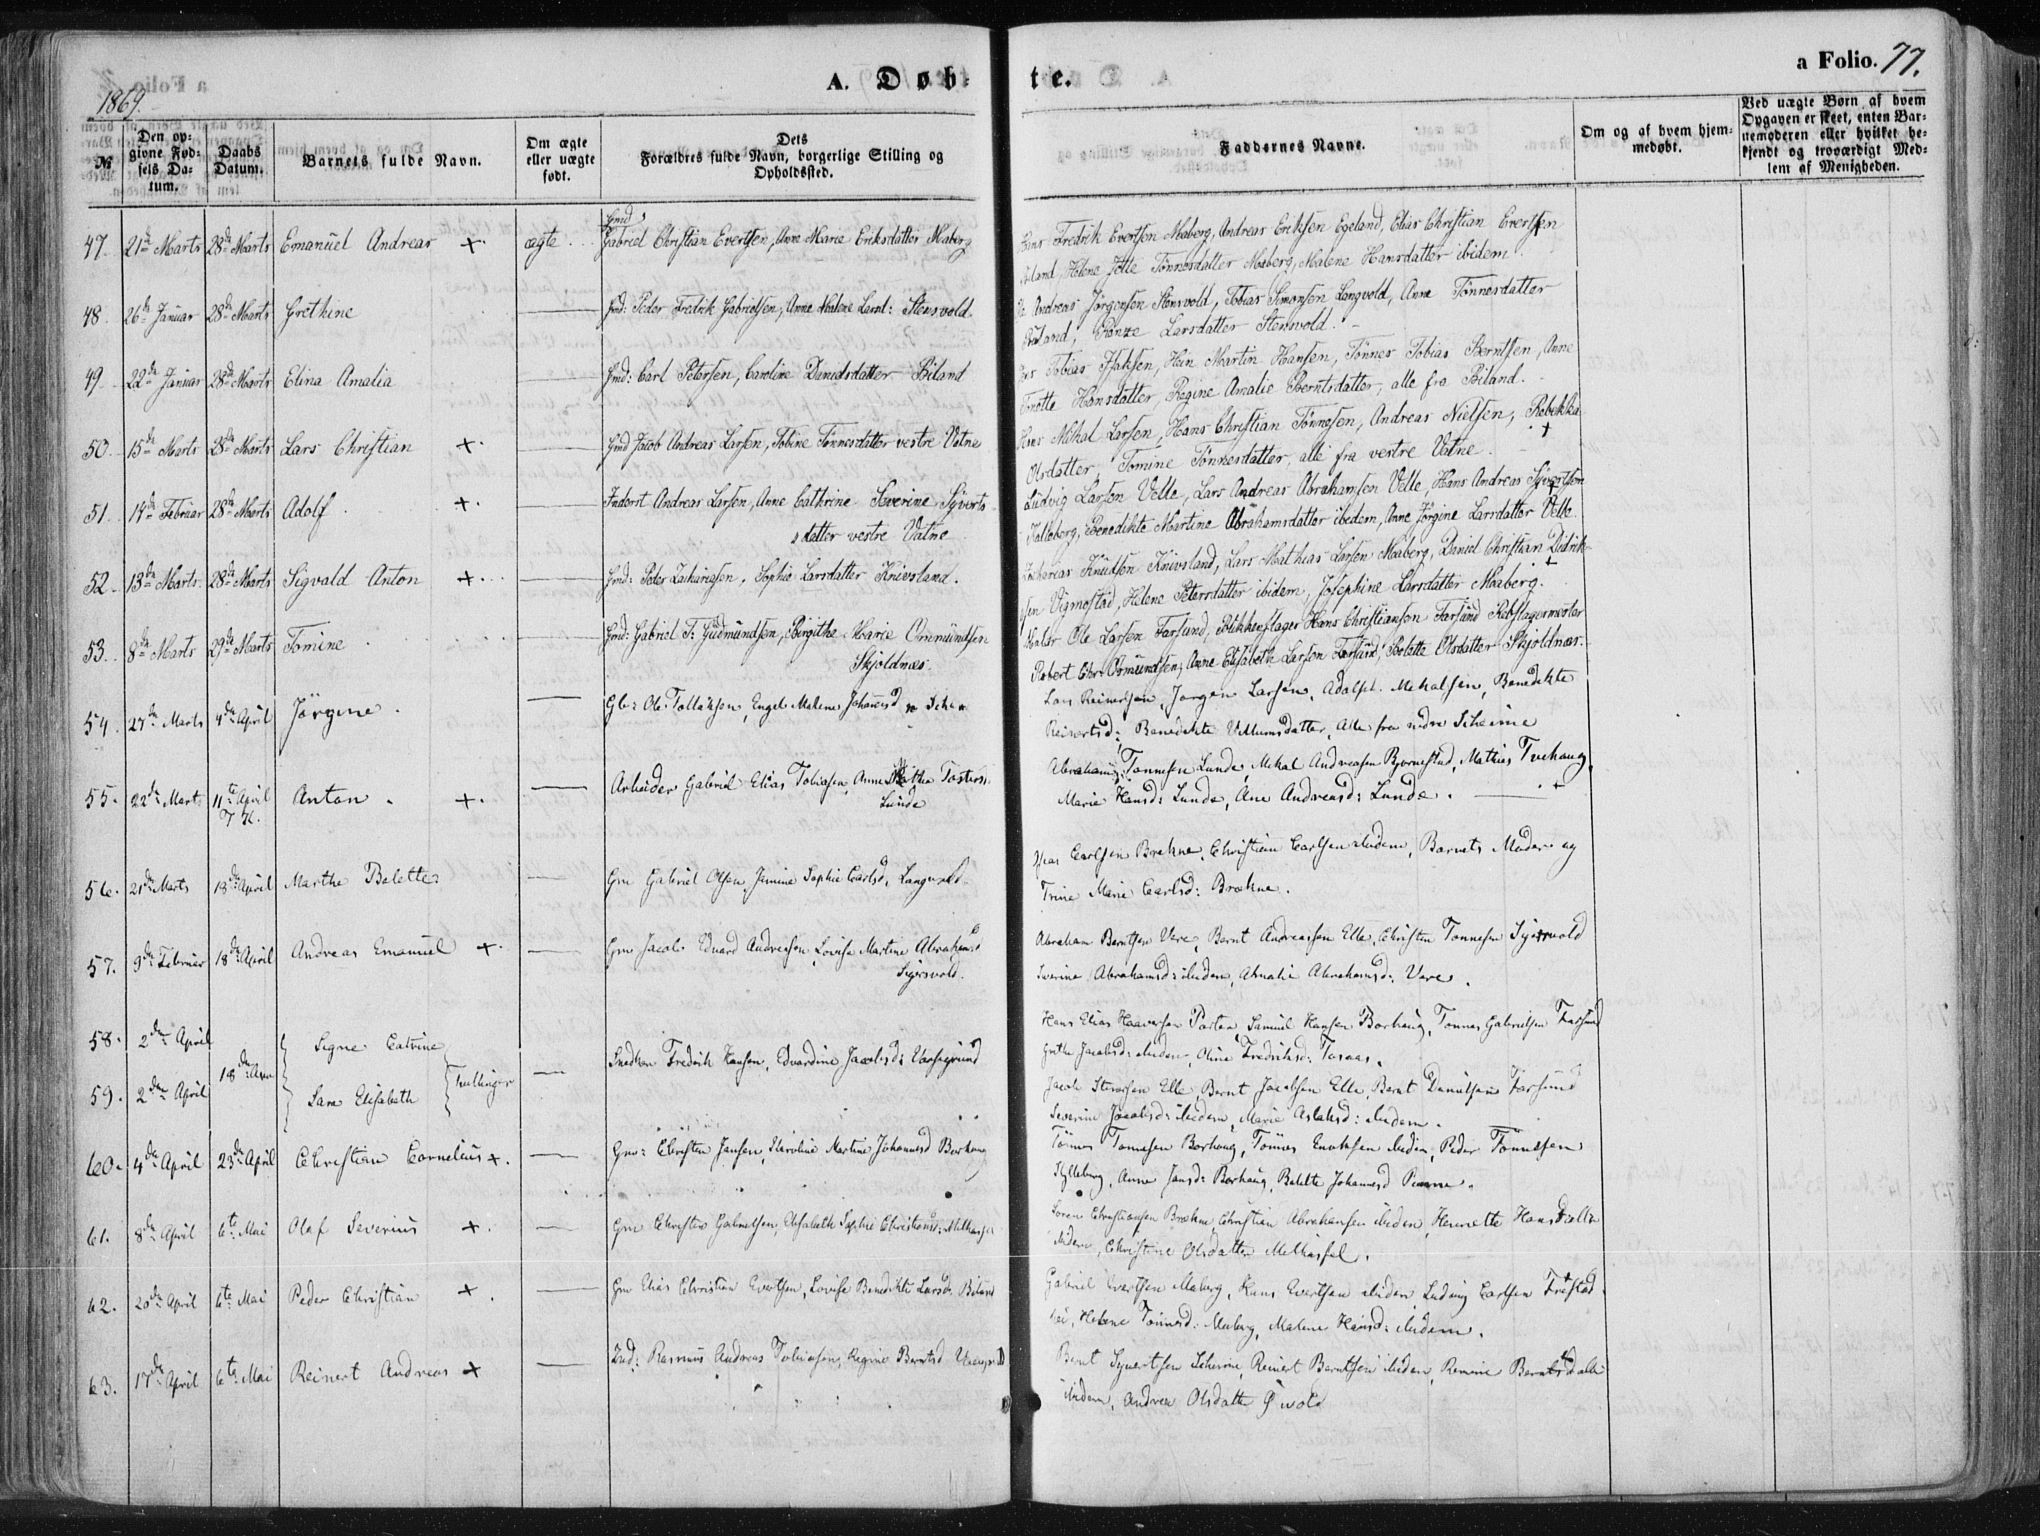 A. Døb-
te.
a Folio. 77.
1869.
№
Den op-
givne Fød-
sels Da-
tum.
Daabs
Datum.
Barnets fulde Navn.
Om ægte
eller uægte
født.
Dets
Forældres fulde Navn, borgerlige Stilling og
Opholdssted.
Faddernes Navne.
Om og af hvem hjem-
medøbt.
Ved uægte Børn af hvem
Opgaven er skeet, enten Bar-
nemoderen eller hvilket be-
kjendt og troværdigt Med-
lem af Menigheden.
47. 21de Marts 28de Marts Emanuel Andreas + ægte Gmd Gabriel Christian Evertsen, Anne Marie Eriksdatter Maberg
Hans Fredrik Evertsen Maberg, Andreas Eriksen Egeland, Elias Christian Evertsen
Biland, Helene Jette Tönnesdatter Maberg, Malene Hansdatter ibidem.
48. 26de Januar 28de Marts Grethine Gmd: Peder Fredrik Gabrielsen, Anne Malene Larsd: Stensvold.
Andreas Jörgensen Stensvold, Tobias Simonsen Langvold, Anne Tönnesdatter
Biland, Larsdatter Stensvold.
49. 22de Januar 28de Marts Elina Amalia Gmd: Carl Petersen, Caroline Danielsdatter Biland
Tobias Isaksen, Hein Martin Hansen, Tönnes Tobias Berntsen, Anne
Hansdatter, Regine Amalie Berntsdatter, alle fra Biland.
50. 15de Marts 28de Marts Lars Christian + Gmd Jacob Andreas Larsen, Tobine Tönnesdatter vestre Vatne
Hans Mikal Larsen, Hans Christian Tönnesen, Andreas Nielsen, Rebekka
Olsdatter, Tomine Tönnesdatter, alle fra vestre Vatne.
51. 14de Februar 28de Marts Adolf + Inderst Andreas Larsen, Anne Cathrine Severine Syverts-
datter vestre Vatne
Ludvig Larsen Velle, Lars Andreas Abrahamsen Velle, Hans Andreas Syvertsen
Kalleberg, Benedikte Martine Abrahamsdatter ibidem, Anne Jörgine Larsdatter Velle.
52. 13de Marts 28de Marts Sigvald Anton + Gmd: Peder Zakariasen, Sophie Larsdatter Knivsland.
Zacharias Knudsen Knivsland, Lars Mathias Larsen Maberg, Daniel Christian Didrik-
sen Vigmostad, Helene Petersdatter ibidem, Josephine Larsdatter Maberg.
53. 8de Marts 29de Marts Tomine Gmd: Gabriel T: Gudmundsen, Bergithe Marie Osmundsen
Skjoldnæs.
Maler Ole Larsen Farsund, Blikkenslager Hans Christiansen Farsund Rebslagermester
Robert Chr. Osmundsen, Anne Elisabeth Larsen Farsund, Bolette Olsdatter Skjoldnæs.
54. 27de Marts 4de April Jörgine Gbr: Ole Tollaksen, Engel Malene Johannesd
Lars Reinertsen, Jorgen Larsen, Adolph Mekalsen, Benedikte
Reinertsd:, Benedikte Villumsdatter, Alle fra nedre Scheime
55. 22de Marts 11te April Anton + Arbeider Gabriel Elias Tobiasen, Anne
Lunde
Tonnesen Lunde, Mekal Andreasen Bjornestad, Mathias Tvehaug,
Marie Hansd: Lunde, Ane Andreasd: Lunde.
56. 21de Marts 18de April Marthe Bolette Gm Gabriel Olsen, Jemine Sophie Carlsd, Langvold
Carlsen Brekne, Christian Carlsen ibidem, Barnets Moder og
Trine Marie Carlsd: Brekne.
57. 9de Februar 18de April Andreas Emanuel + Gm Jacob Eduard Andreasen, Lovise Martine Abrahamsd
Sigersvold.
Abraham Berntsen Vere, Bernt Andreassen Elle, Christen Tonnesen Sigersvold
Severine Abrahamsd: ibidem, Amalie Abrahamsd: Vere.
58. 2den April Signe Catrine
59. 2den April 18de April Sara Elisabeth Tvillinger Snedker Fredrik Hansen, Edvardine Jacobsd:
Hans Elias Haaversen Porten, Samuel Hansen Borhaug, Tonnes Gabrielsen Farsund
Jacobsd: ibidem, Oline Fredriksd:
Jacob Elle, Bernt Jacobsen Elle, Bernt Danielsen Farsund
Severine Jacobsd: ibidem, Marie Aslaksd: ibidem.
60. 4de April 23de April Christian Cornelius + Gm: Christen Jansen, Karoline Martine Johannesd Borhaug
Tönnes Tonnesen Borhaug, Tönnes Enoksen ibidem, Peder Tönnesen
Anne Jansd: Borhaug, Bolette Johannesd
61. 8de April 6te Mai Olaf Severius + Gm Christen Gabrielsen, Elisabeth Sophie Christiansd:
Soren Christiansen Brekne, Christian Abrahamsen ibidem, Henriette Hansdatter
ibidem, Christine Olsdatter
62. 20de April 6te Mai Peder Christian + Gm Elias Christian Evertsen, Lovise Benedikte Larsd: Biland
Gabriel Evertsen Maberg, Hans Evertsen ibidem, Ludvig Carlsen
Helene Tonnesd: Maberg, Malene Hansd: ibidem.
63. 17de April 6te Mai Reinert Andreas + Ind: Rasmus Andreas Tobiasen, Regine Berntsd
Bernt Syvertsen Scheime, Reinert Berntsen ibidem, Berntsdatter
ibidem, Andrea Olsdatter